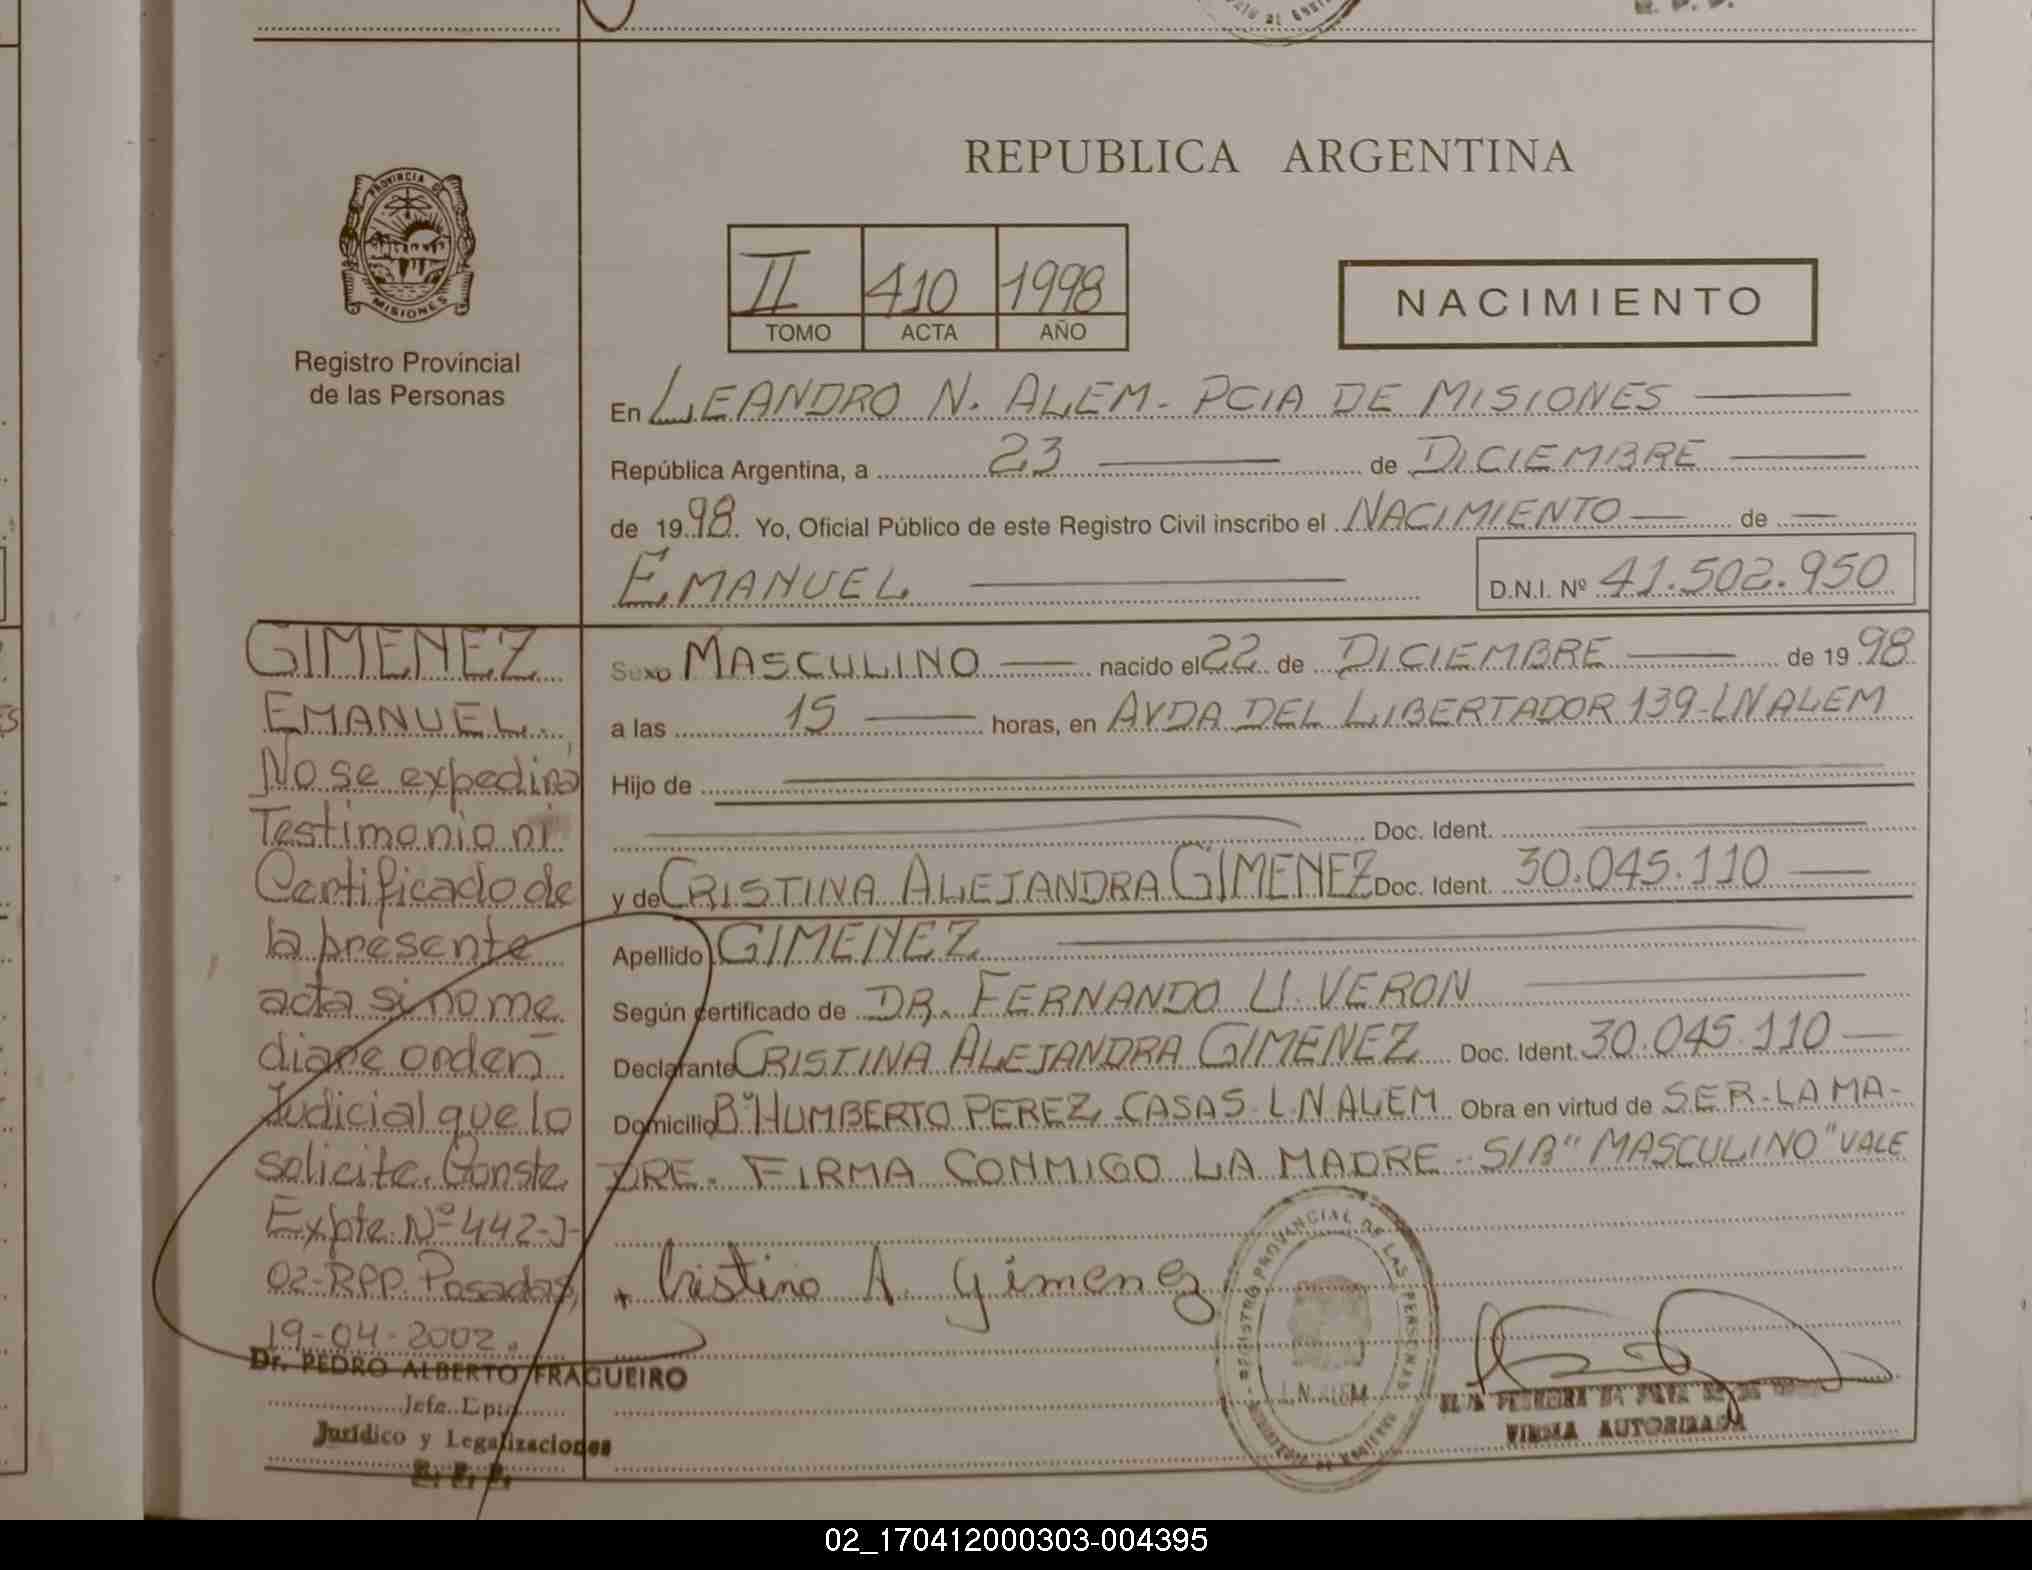 REPUBLICA ARGENTINA
PROVINCIA DE
MISIONES
Registro Provincial
de las Personas
II 410 1998
TOMO ACTA AÑO
NACIMIENTO
En LEANDRO N. ALEM - PCIA DE MISIONES
República Argentina, a 23 de DICIEMBRE
de 1998. Yo, Oficial Público de este Registro Civil inscribo el NACIMIENTO de
EMANUEL D.N.I. Nº 41.502.950
Sexo MASCULINO nacido el 22 de DICIEMBRE de 1998
a las 15 horas, en AVDA DEL LIBERTADOR 139-LNALEM
Hijo de
Doc. Ident.
y de CRISTINA ALEJANDRA GIMENEZ Doc. Ident. 30.045.110
Apellido GIMENEZ
Según certificado de DR. FERNANDO U. VERON
Declarante CRISTINA ALEJANDRA GIMENEZ Doc. Ident. 30.045.110
Domicilio Bº HUMBERTO PEREZ CASAS. L.N ALEM Obra en virtud de SER-LA MA-
DRE. FIRMA CONMIGO LA MADRE - S/B "MASCULINO" VALE
+ Cristina A. Gimenez
REGISTRO PROVINCIAL DE LAS PERSONAS
L.N. ALEM
FIRMA AUTORIZADA
GIMENEZ
EMANUEL.
No se expedirá
Testimonio ni
Certificado de
la presente
acta si no me
diare orden
Judicial que lo
solicite. Conste.
Expte. Nº 442-J-
02-RPP. Posadas,
19-04-2002.
Dr. PEDRO ALBERTO FRAGUEIRO
Jefe Dpto.
Jurídico y Legalizaciones
R. P. P.
02_170412000303-004395